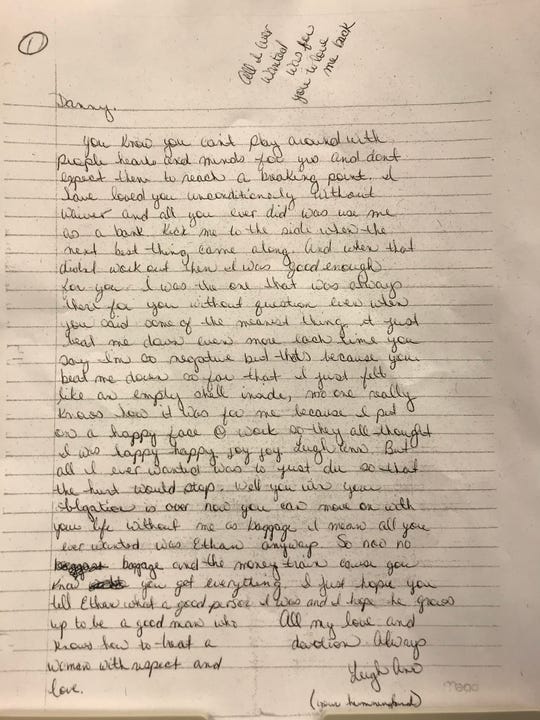 1
All I ever
wanted
was for
you to love
me back
Danny,
You know you can't play around with
people hearts and minds for yrs and dont
expect them to reach a breaking point. I
have loved you unconditionally without
waiver and all you ever did was use me
as a bank kick me to the side when the
next best thing came along. And when that
didnt work out then I was good enough
for you. I was the one that was always
there for you without question even when
you said some of the meanest thing. it just
beat me down even more each time you
say I'm so negative but thats because you
beat me down so far that I just felt
like an empty shell inside, no one really
knows how it was for me because I put
on a happy face @ work so they all thought
I was happy happy joy joy Leigh Ann. But
all I ever wanted was to just die so that
the hurt would stop. Well you win your
obligation is over now you can move on with
your life without me as baggage I mean all you
ever wanted was Ethan anyways. So now no
baggage and the money train cause you
know you get everything. I just hope you
tell Ethan what a good person I was and I hope he grows
up to be a good man who
knows how to treat a
woman with respect and
love.
All my love and
devotion Always
Leigh Ann
(your hummingbird)